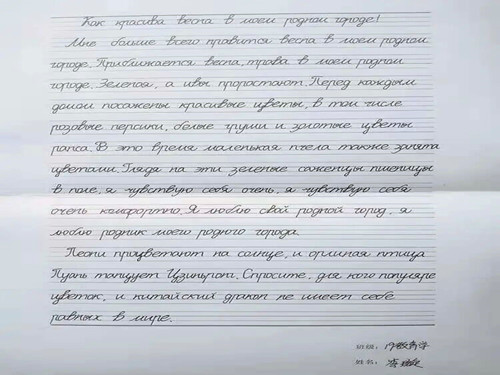 Как красива весна в моем родном городе!
Мне больше всего нравится весна в моем родном
городе. Приближается весна, трава в моем родном
городе. Зеленая, а ивы прорастают. Перед каждым
домом посажены красивые цветы, в том числе
розовые персики, белые груши и золотые цветы
рапса. В это время маленькая пчела также занята
цветами. Глядя на эти зеленые саженцы пшеницы
в поле, я чувствую себя очень, я чувствую себя
очень комфортно. Я люблю свой родной город, я
люблю родник моего родного города.
Пеони процветают на солнце, и орлиная птица
Луань танцует Цзиньропи. Спросите, для кого популяре
цветок, и китайский дракон не имеет себе
равных в мире.
班级:
姓名: